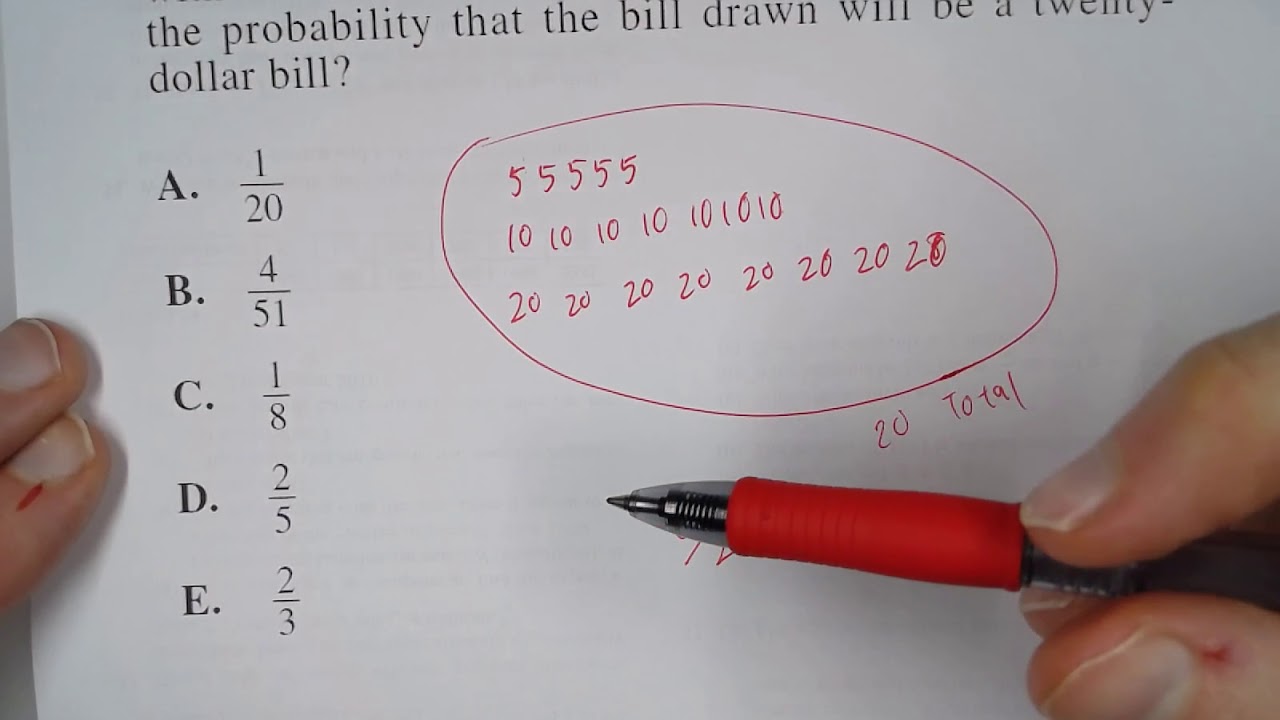 the probability that the bill drawn will be a twenty-
dollar bill?
A. 1/20
B. 4/51
C. 1/8
D. 2/5
E. 2/3
5 5 5 5 5
10 10 10 10 10 10 10
20 20 20 20 20 20 20 20
20 Total